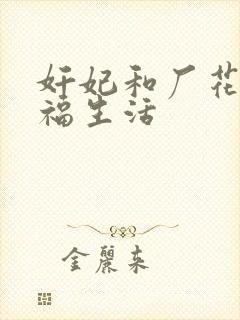 奸妃和厂花
福生活
金丽来